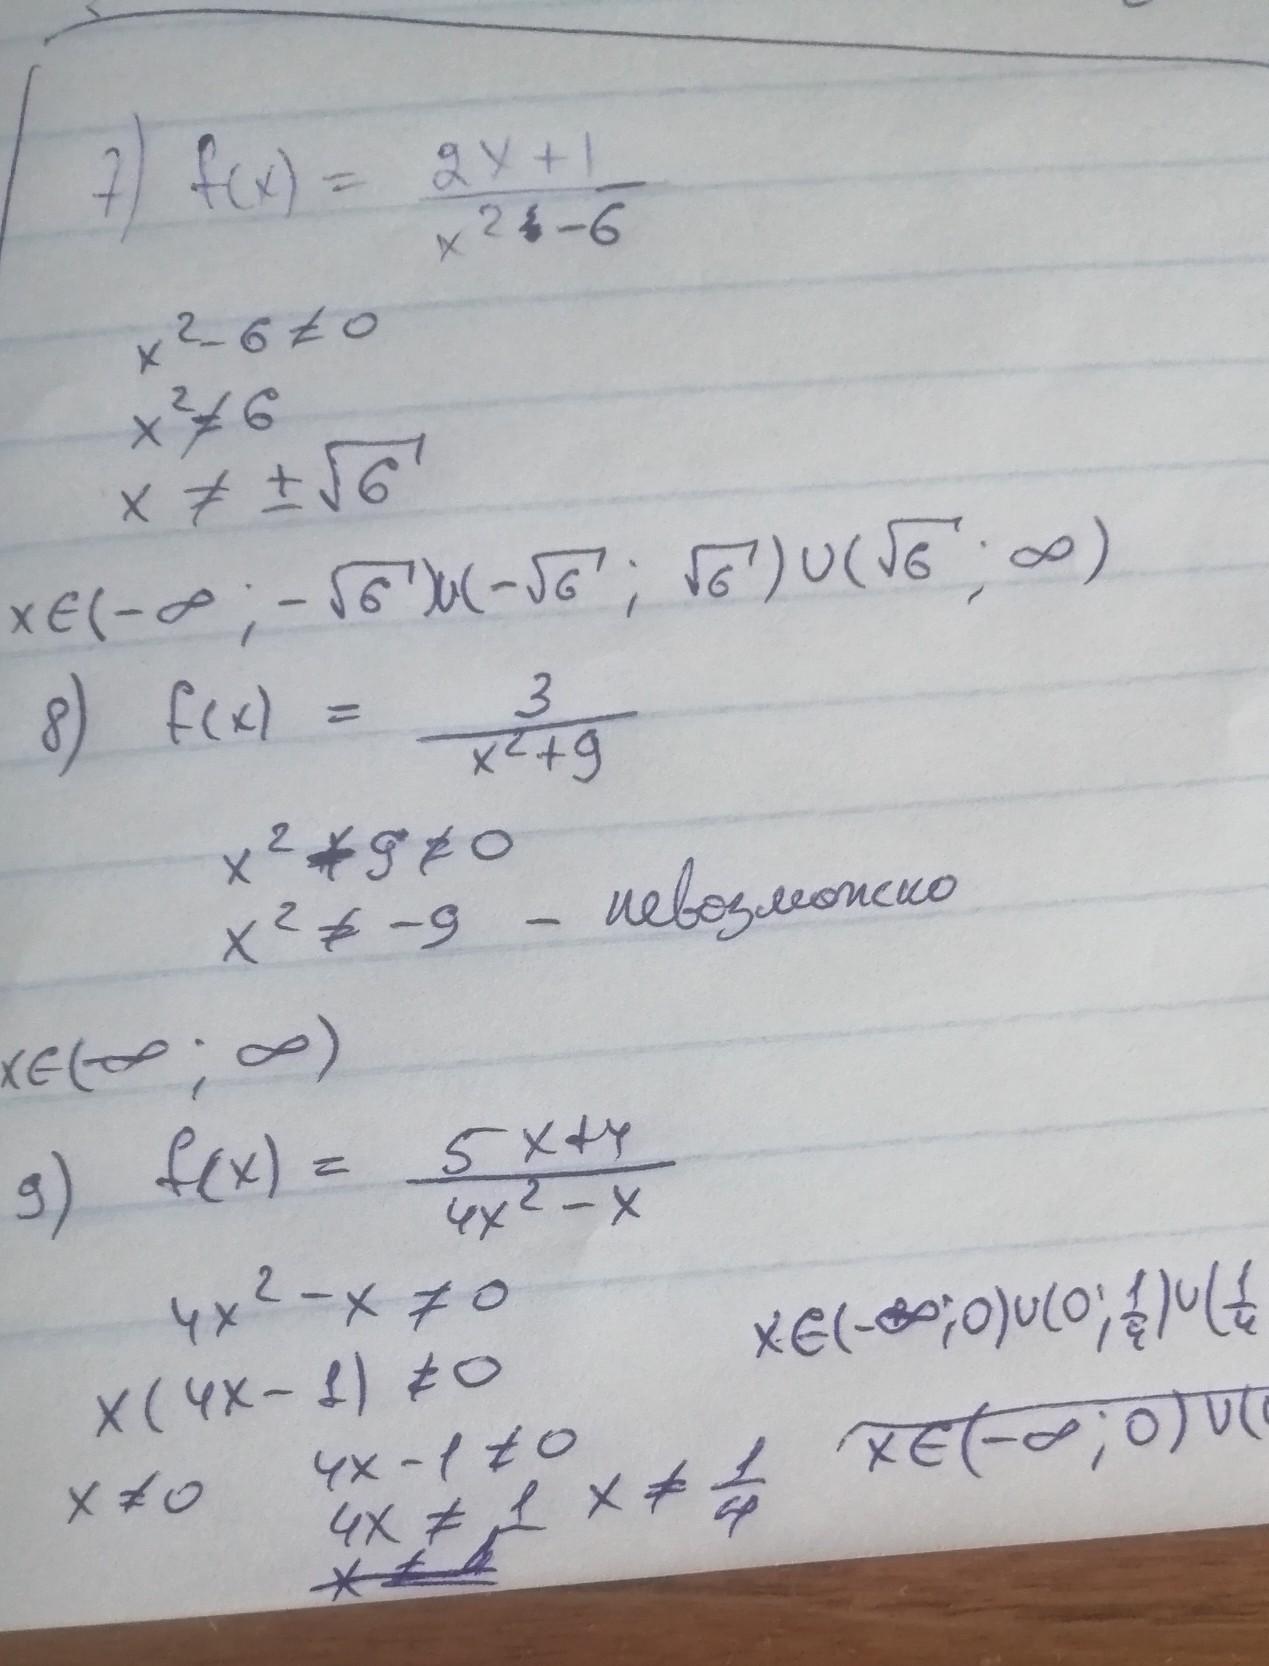 7) f(x) = (2x+1)/(x²-6)
x²-6≠0
x²≠6
x ≠ ±√6
x∈(-∞; -√6)∪(-√6; √6)∪(√6; ∞)
8) f(x) = 3/(x²+9)
x²+9≠0
x²≠-9 - невозможно
x∈(-∞; ∞)
9) f(x) = (5x+4)/(4x²-x)
4x²-x≠0
x(4x-1)≠0
x≠0 4x-1≠0
4x≠1 x≠1/4
x∈(-∞;0)∪(0;1/4)∪(1/4
x∈(-∞;0)∪(